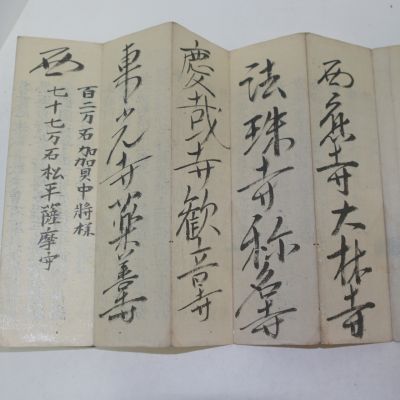 西應寺大林寺
法珠寺称名寺
慶哉寺歓音寺
東光寺薬善寺
西
百二万石加賀中將様
七十七万石松平薩摩守